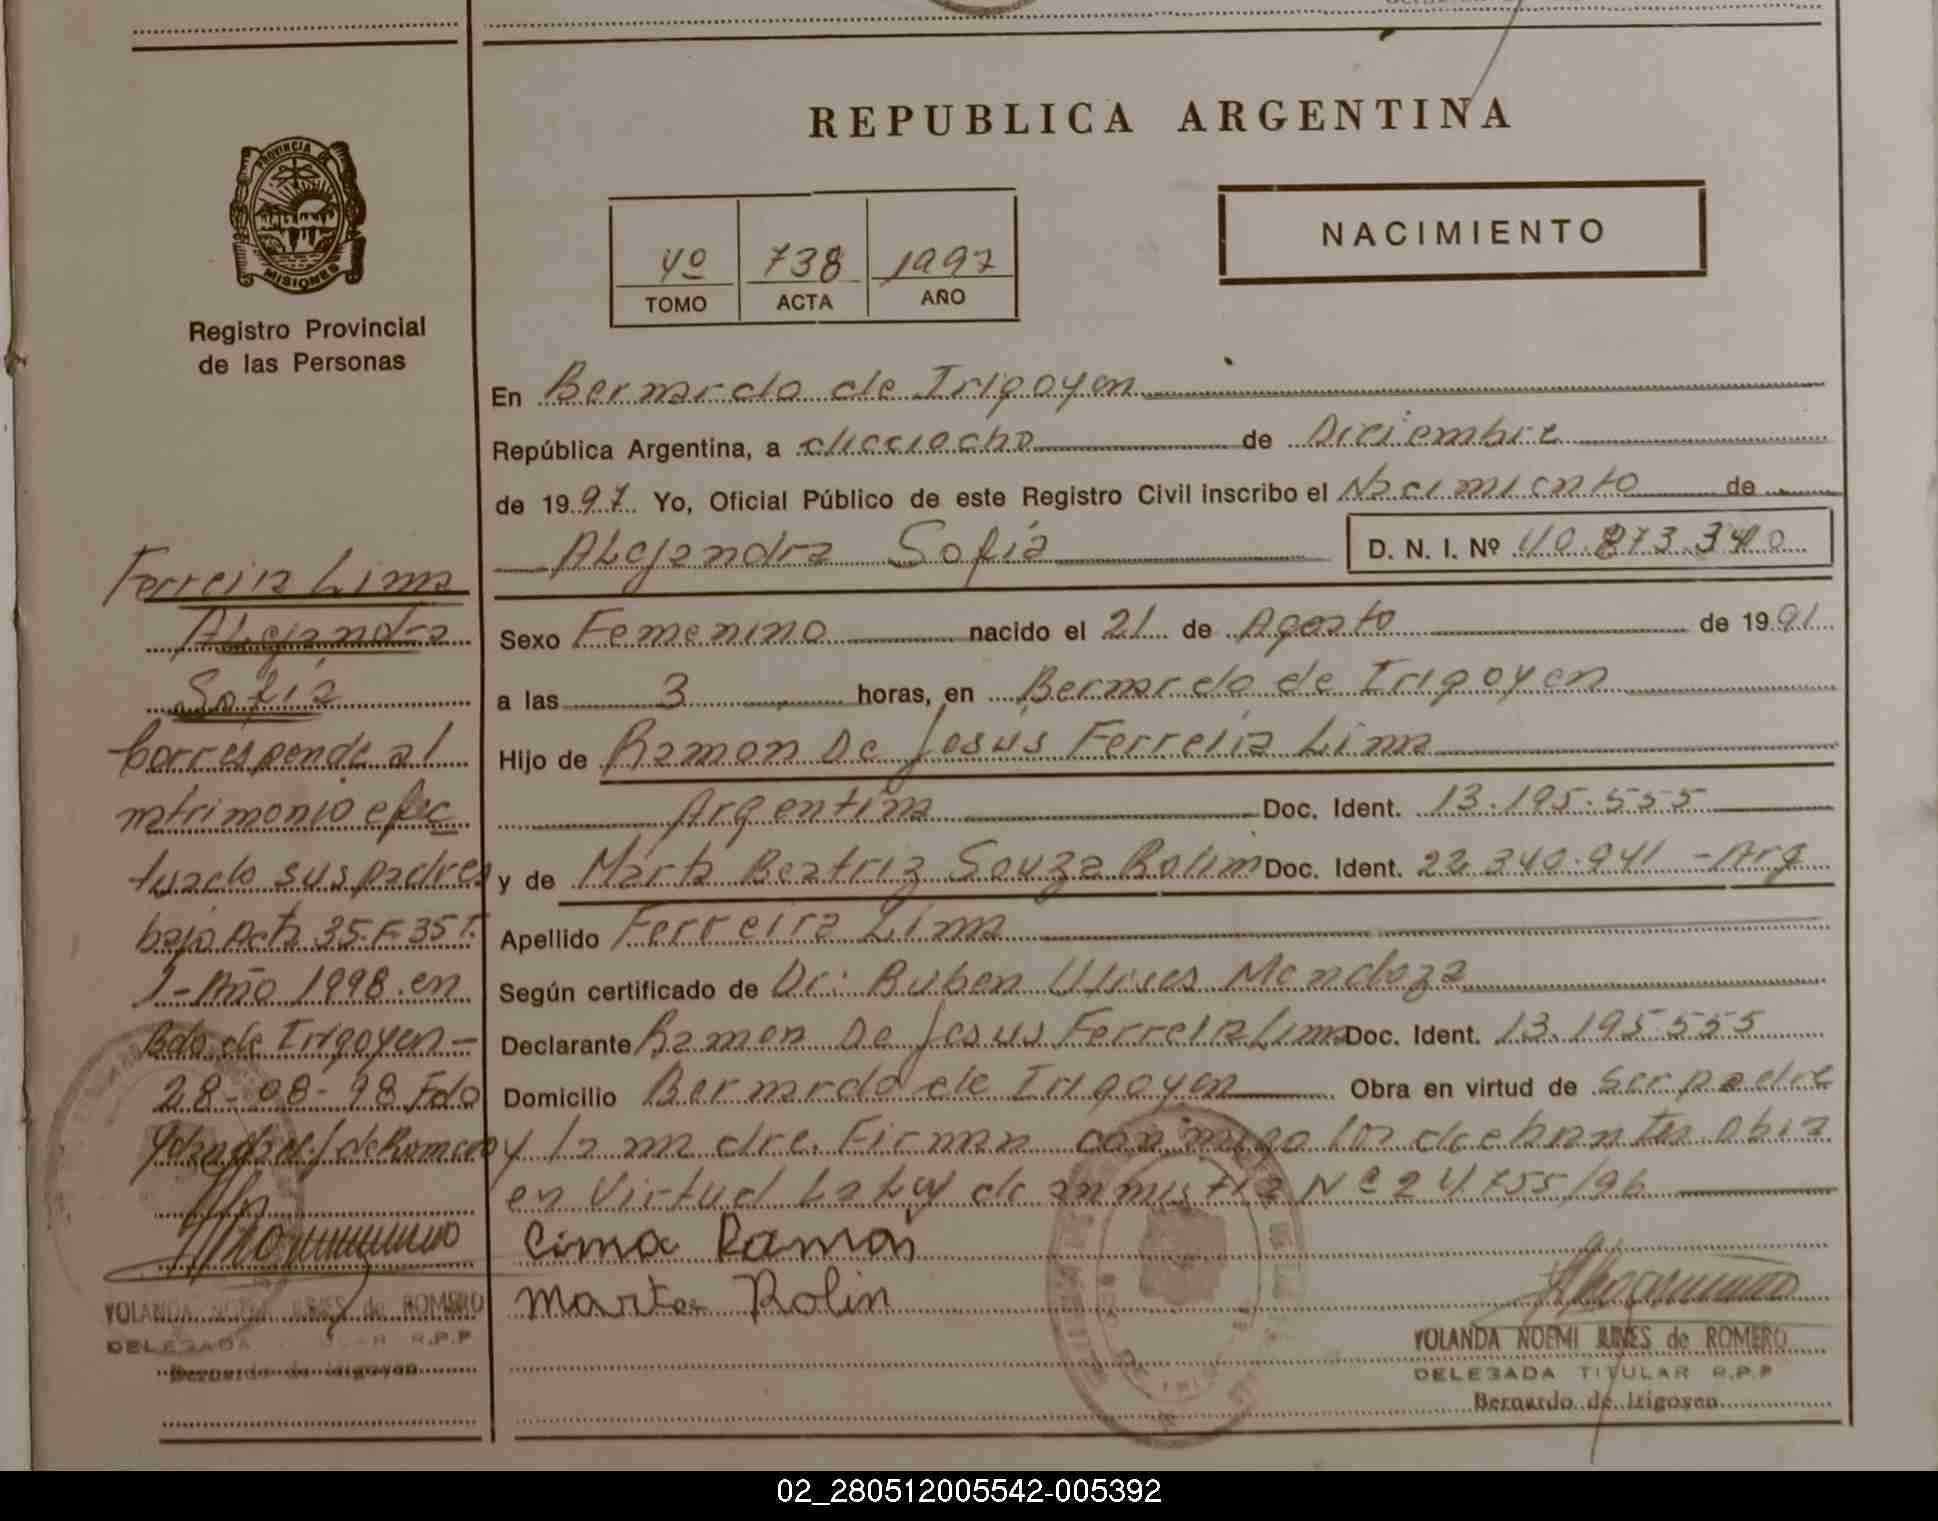 REPUBLICA ARGENTINA
PROVINCIA DE
MISIONES
Registro Provincial
de las Personas
4º 738 1997
TOMO ACTA AÑO
NACIMIENTO
En Bernardo de Irigoyen
República Argentina, a dieciocho de Diciembre
de 1997 Yo, Oficial Público de este Registro Civil inscribo el Nacimiento de
Alejandra Sofia D. N. I. Nº 40.873.340
Sexo Femenino nacido el 21 de Agosto de 1991
a las 3 horas, en Bernardo de Irigoyen
Hijo de Ramon De Jesús Ferreira Lima
Argentina Doc. Ident. 13.195.555
y de Marta Beatriz Souza Rolim Doc. Ident. 22.340.941 - Arg
Apellido Ferreira Lima
Según certificado de Dr: Ruben Ulises Mendoza
Declarante Ramon De Jesus Ferreira Lima Doc. Ident. 13.195.555
Domicilio Bernardo de Irigoyen Obra en virtud de ser padre
y la madre. Firman conmigo los Obra
en Virtud La Ley de Nº 24755/96
Lima Ramón
Marta Rolin
YOLANDA NOEMI de ROMERO
DELEGADA TITULAR R.P.P
Bernardo de Irigoyen
Ferreira Lima
Alejandra
Sofia
Corresponde al
matrimonio efec
tuado sus padres
bajo Acta 35.F.35T.
1-Año 1998. en
Bdo de Irigoyen-
28-08-98 Fdo
Yolanda de Romero
YOLANDA de ROMERO
DELEGADA R.P.P
Bernardo de Irigoyen
02_280512005542-005392